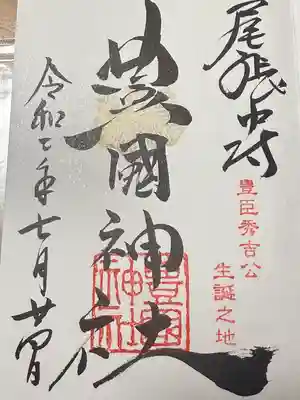 尾張中村
豊臣秀吉公
生誕之地
豊國神社
豊國
神社
令和二年七月廿四日